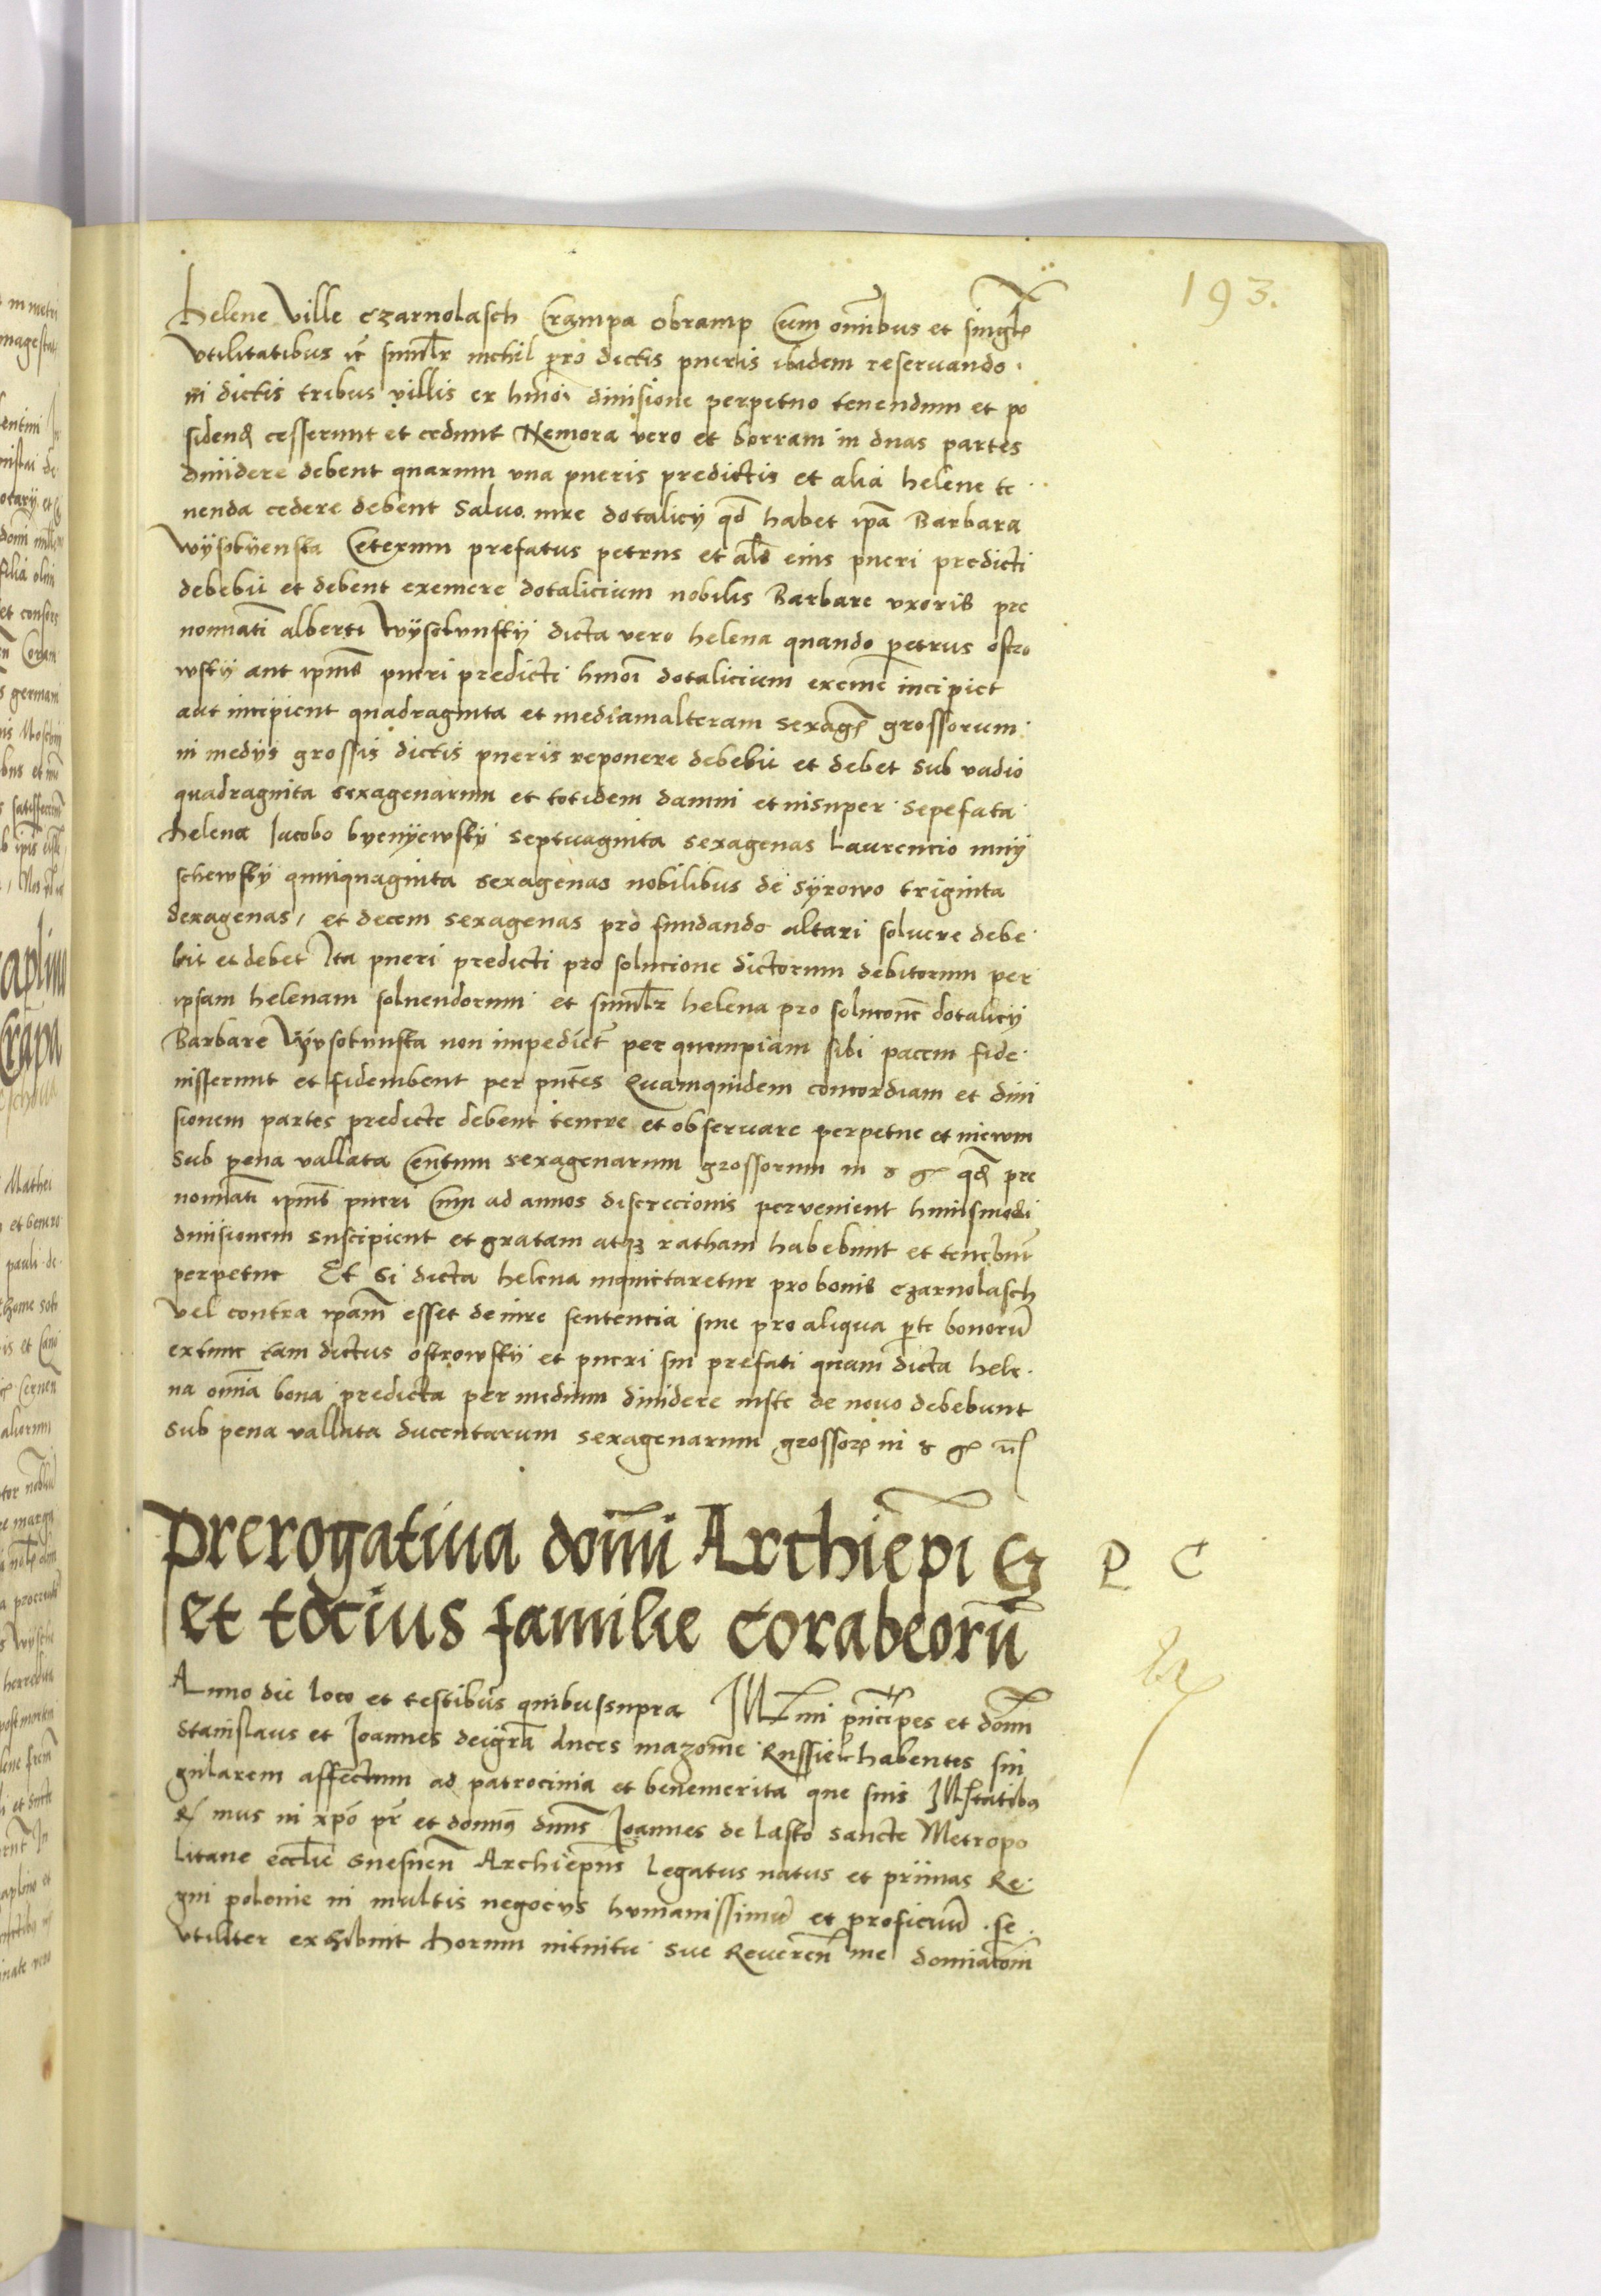 193.
Helene Ville Czarnolasch Crampa Obramp Cum om̄ibus et singl
Vtilitatibus it̄ simil̄r nichil pro dictis pueris ibidem reseruando
in dictis tribus villis ex hmōi diuisione perpetuo tenendum et po
sidend cesserunt et cedunt Nemora vero et borram in duas partes
diuidere debent quarum vna pueris predictis et alia helene te
nenda cedere debent Saluo iure dotalicij qd̄ habet ip̄a Barbara
Wijsokijenska Ceterum prefatus petrus et al̄s eius pueri predicti
debebit et debent exemere dotalicium nobilis Barbare vxoris pre
nominati alberti Wijsokinskij dicta vero helena quando petrus ostro
wskij aut ipīus pueri predicti hmōi dotalicium exeme incipiet
aut incipient quadraginta et mediamalteram sexag grossorum
in medijs grossis dictis pueris reponere debebit et debet sub vadio
quadraginta sexagenarum et totidem damni et insuper sepefata
helena Iacobo byenijewskij septuaginta sexagenas Laurencio mnij
schewskij quinquaginta sexagenas nobilibus de sijrowo triginta
sexagenas, et decem sexagenas pro fundando altari soluere debe
bit et debet Ita pueri predicti pro solucione dictorum debitorum per
ipsam helenam soluendorum et simil̄r helena pro solucōne dotalicij
Barbare Wijsokinska non impediet̄ per quempiam sibi pacem fide
iusserunt et fideiubent per pn̄tes Quamquidem concordiam et diui
sionem partes predicte debent tenere et obseruare perpetue et in ewm
sub pena vallata Centum sexagenarum grossorum in s g qd pre
nominati ipīus pueri Cum ad annos discrecionis pervenient huiusmodi
diuisionem suscipient et gratam atq3 ratham habebunt et tenebūt
perpetue Et si dicta helena inquietaretur pro bonis Czarnolasch
vel contra ip̄am esset de iure sentencia siue pro aliqua p̄te bonorū
extunc tam dictus ostrowskij et pueri sui prefati quam dicta hele
na om̄ia bona predicta per medium diuidere iuste de nouo debebunt
sub pena vallata ducentarum sexagenarum grossor in s g
Prerogatiua domī Archiep̄i G
et tocius familie Corabeorū
P C
Anno die loco et testibus quibussupra Ill mi prīcipes et domī
Stanislaus et Joannes dei gra̅ duces mazouie Russie habentes sin
gularem affectum ad patrocinia et benemerita que suis Illstatibus
R mus in xp̄o pr̄ et domn9 dnūs Joannes de lasko sancte Metropo
litane eccl̄ie Gnesnen̄ Archiep̄us legatus natus et primas Re
gni polonie in multis negocijs humanissimū et proficuū se
vtiliter exhibuit horum intuitu sue Reueren̄ me